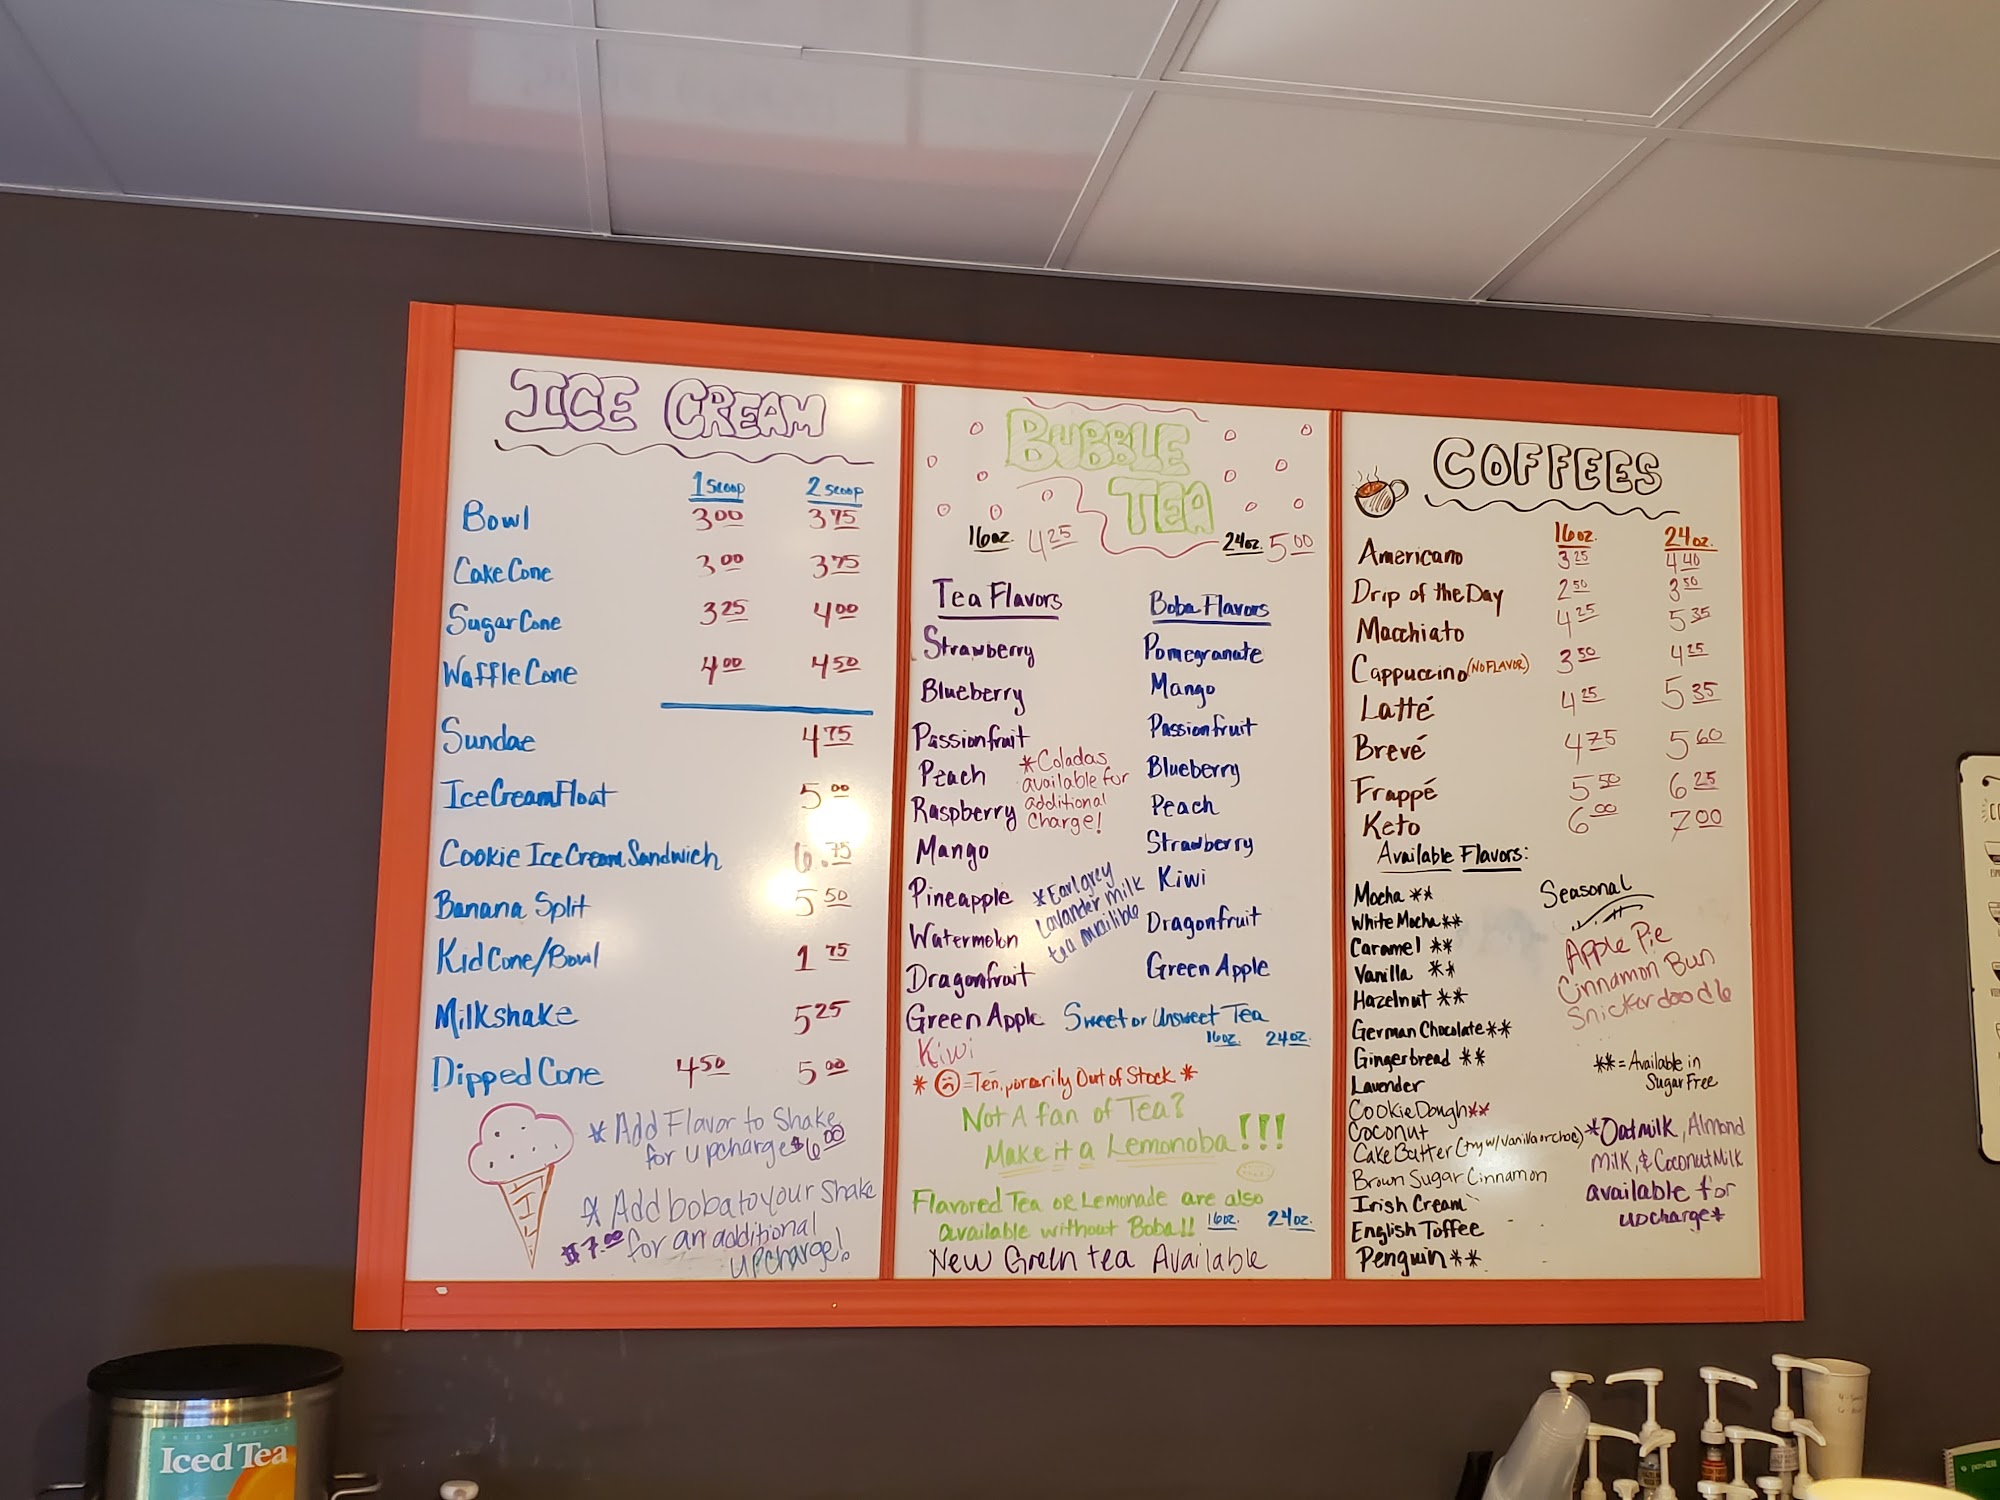 ICE CREAM
1 scoop 2 scoop
Bowl 3.00 3.75
Cake Cone 3.00 3.75
Sugar Cone 3.25 4.00
Waffle Cone 4.00 4.50
Sundae 4.75
Ice Cream Float 5.00
Cookie Ice Cream Sandwich 6.75
Banana Split 5.50
Kid Cone/Bowl 1.75
Milkshake 5.25
Dipped Cone 4.50 5.00
* Add Flavor to Shake
for upcharge $6.00
* Add boba to your Shake
$7.00 for an additional
upcharge!
BUBBLE
TEA
16oz. 4.25 24oz. 5.00
Tea Flavors
Strawberry
Blueberry
Passionfruit
Peach
Raspberry
Mango
Pineapple
Watermelon
Dragonfruit
Green Apple
Kiwi
*Coladas
available for
additional
Charge!
*Earl grey
Lavander milk
tea
Boba Flavors
Pomegranate
Mango
Passionfruit
Blueberry
Peach
Strawberry
Kiwi
Dragonfruit
Green Apple
Sweet or Unsweet Tea
16oz. 24oz.
* = Temporarily Out of Stock *
Not A fan of Tea?
Make it a Lemonoba!!!
Flavored Tea or Lemonade are also
available without Boba!! 16oz. 24oz.
New Green tea Available
COFFEES
16oz. 24oz.
Americano 3.25 4.40
Drip of the Day 2.50 3.50
Macchiato 4.25 5.35
Cappuccino (NO FLAVOR) 3.50 4.25
Latté 4.25 5.35
Brevé 4.75 5.60
Frappé 5.50 6.25
Keto 6.00 7.00
Available Flavors:
Mocha **
White Mocha **
Caramel **
Vanilla **
Hazelnut **
German Chocolate **
Gingerbread **
Lavender
Cookie Dough **
Coconut
Cake Batter (try w/ Vanilla or choc)
Brown Sugar Cinnamon
Irish Cream
English Toffee
Penguin **
Seasonal
Apple Pie
Cinnamon Bun
Snickerdoodle
** = Available in
Sugar Free
*Oatmilk, Almond
Milk, & Coconut Milk
available for
upcharge*
Iced Tea